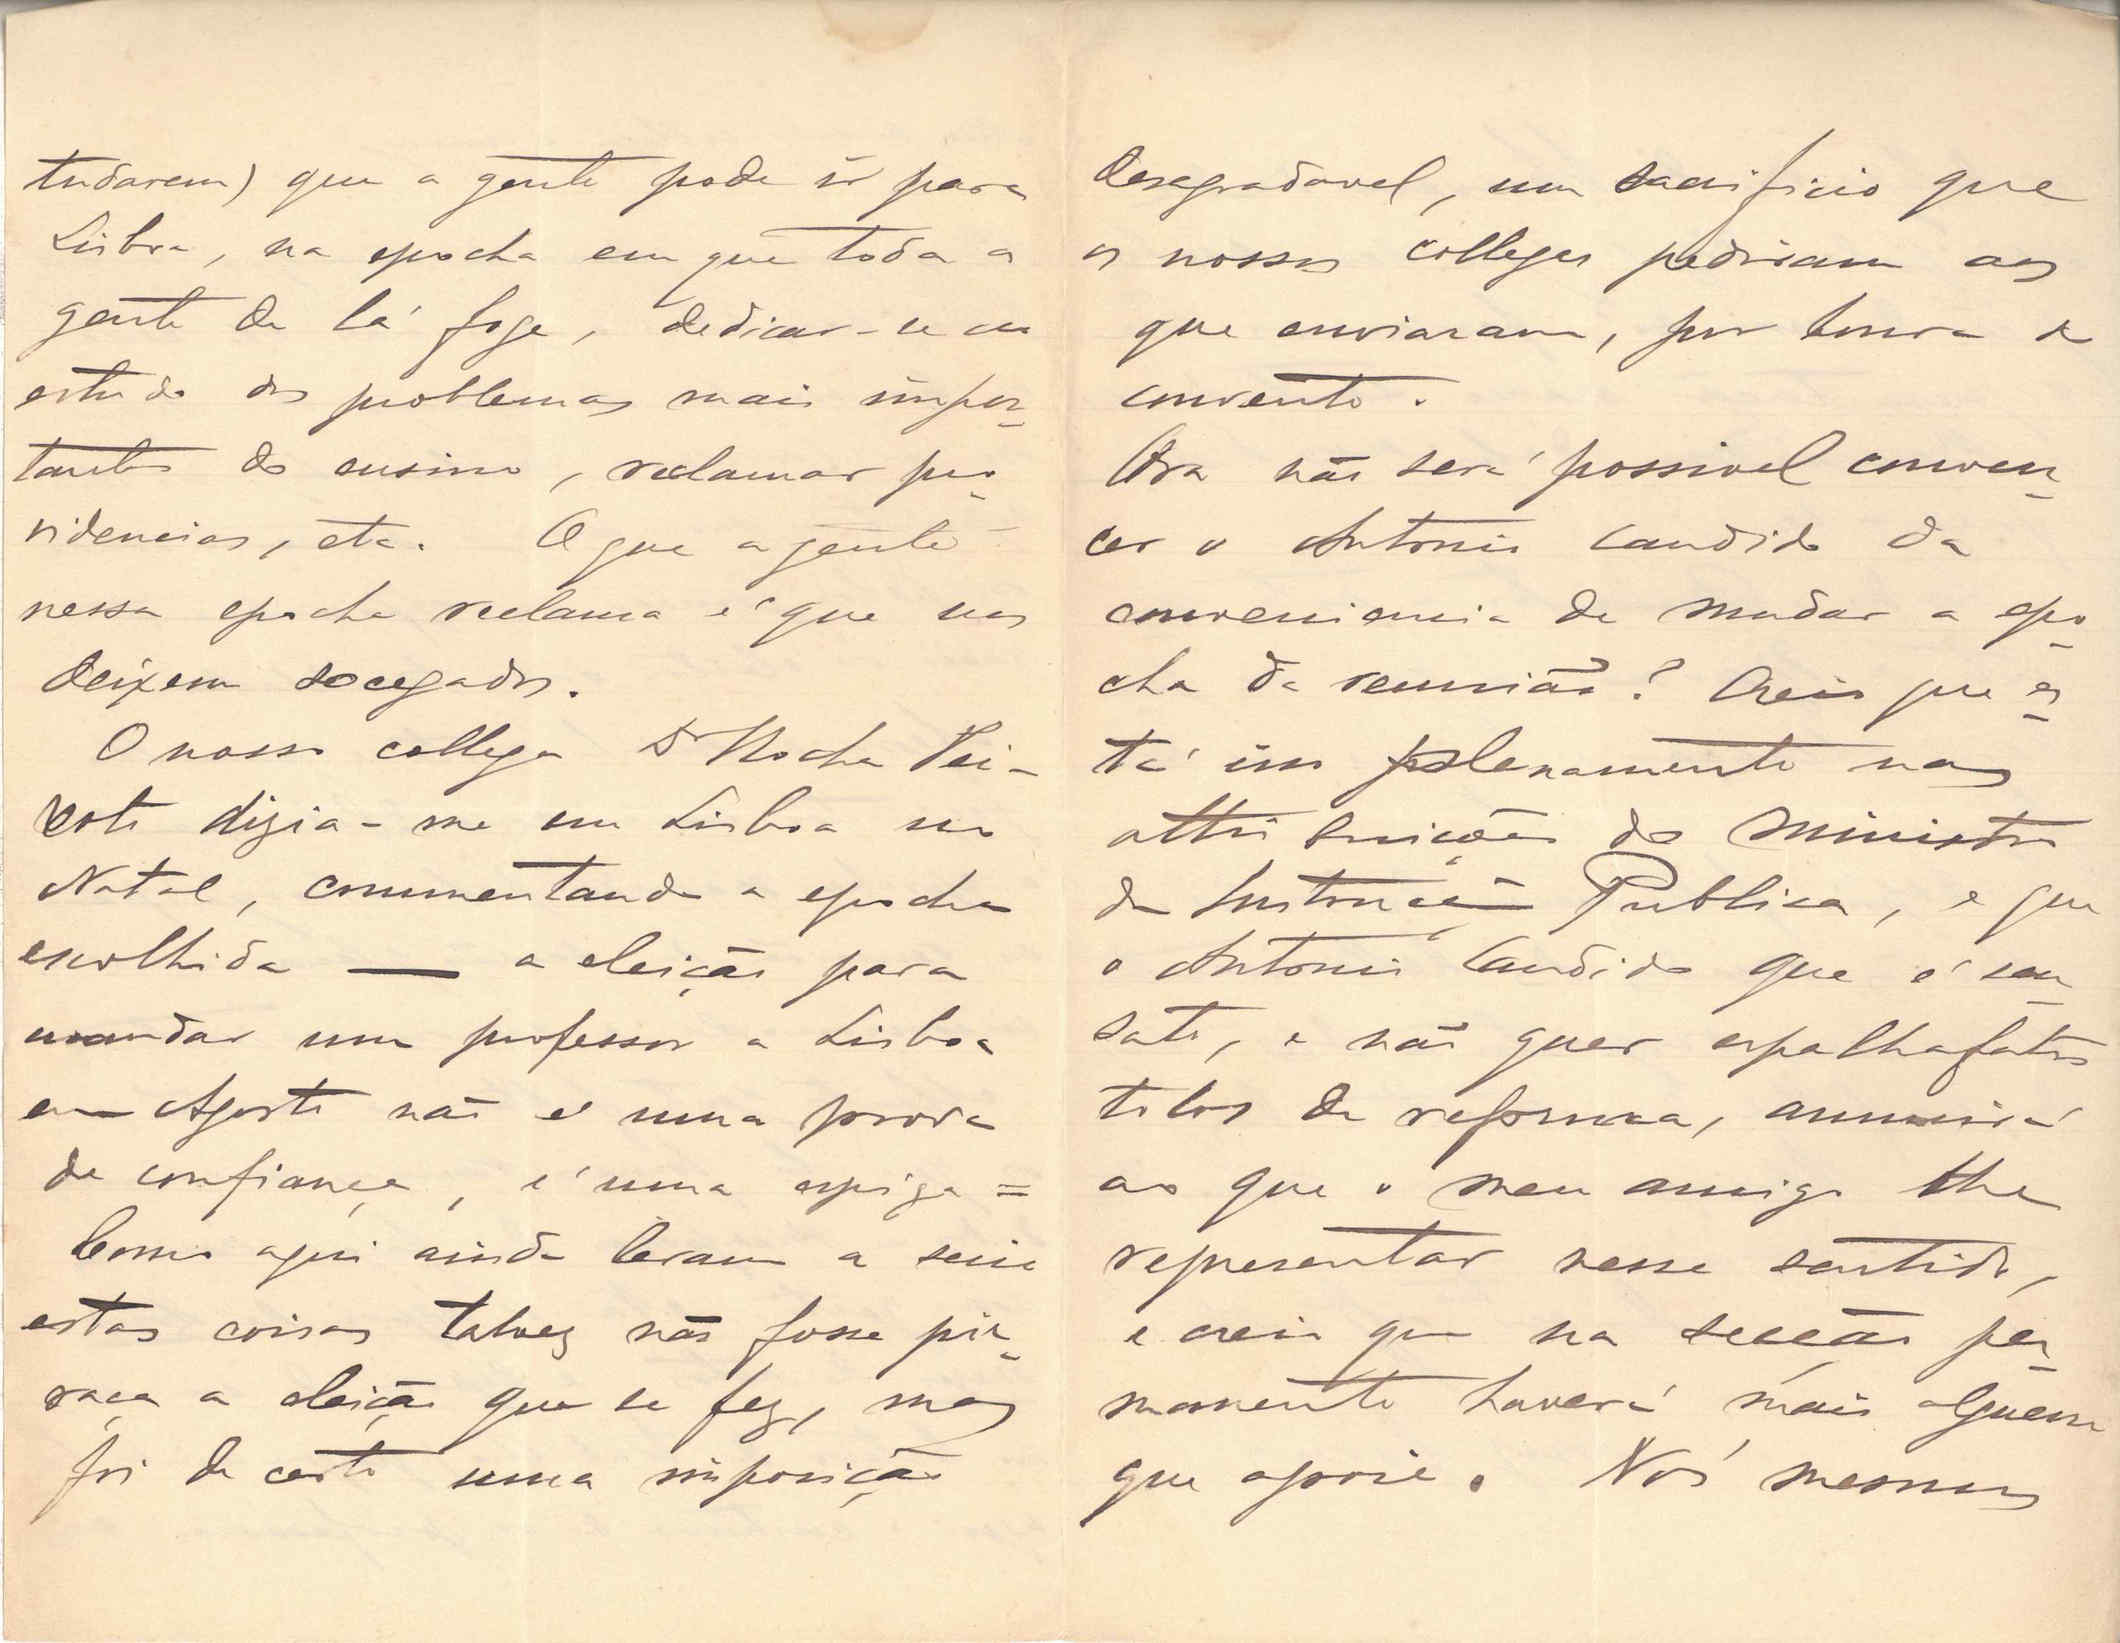 tudarem) que a gente pode ir para
Lisboa, na epocha em que toda a
gente de lá foge, dedicar-se ao
estudo dos problemas mais impor-
tantes do ensino, reclamar pro-
videncias, etc. O que a gente
nessa epocha reclama é que nos
deixem socegados.
O nosso collega Dr Rocha Pei-
xoto dizia-me em Lisboa no
Natal, commentando a epocha
escolhida — a eleição para
mandar um professor a Lisboa
em Agosto não é uma prova
de confiança, é uma espiga =
Como aqui ainda levam a serio
estas coisas talvez não fosse pir-
raça a eleição que se fez, mas
foi de certo uma imposição
desagradavel, um sacrificio que
os nossos collegas pediram aos
que enviaram, por honra do
convento.
Ora não será possivel conven-
cer o Antonio Candido da
conveniencia de mudar a epo-
cha da reunião? Creio que es-
tá isso plenamente nas
attribuições do Ministro
da Instrucção Publica, e que
o Antonio Candido que é sen-
sato, e não quer espalhafatos
tolos de reforma, annuirá
ao que o meu amigo lhe
representar nesse sentido,
e creio que na secção per-
manente haverá mais alguem
que apoie. Nós mesmos